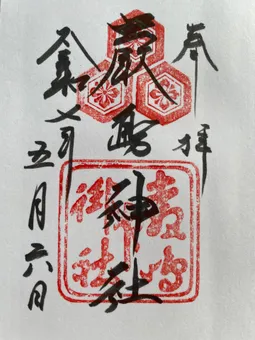 奉拝
嚴島神社
令和七年
五月六日
嚴島
御社